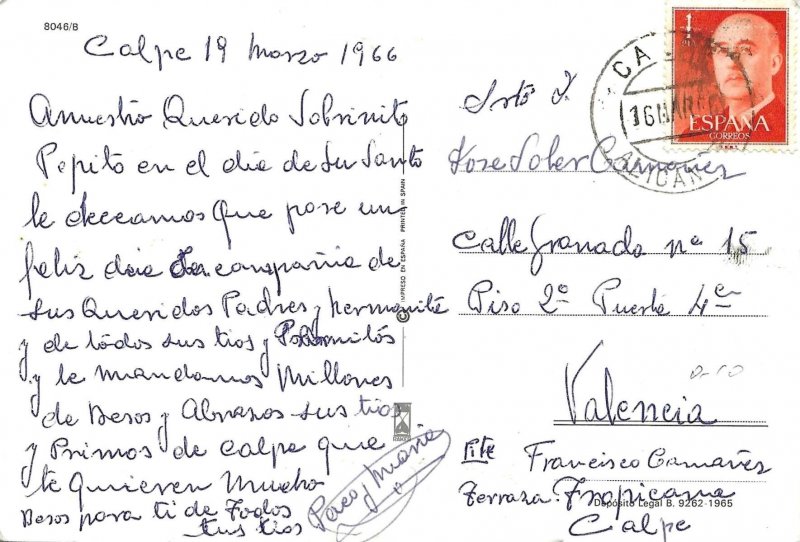 8046/B
Calpe 19 Marzo 1966
Anuestro Querido Sobrinito
Pepito en el dia de Su Santo
le deceamos que pase un
feliz dia En la compañia de
sus Queridos Padres y hermanita
y de todos sus tios y
y le mandamos Millones
de Besos y Abrazos sus tios
y Primos de Calpe que
te quieren Mucho
Besos para ti de Todos
tus tios
Paco y Maria
© IMPRESO EN ESPAÑA PRINTED IN SPAIN
1
ESPAÑA
CORREOS
16 MAR
ALICAN
Srtº D.
Jose Soler Camañez
Calle Granada nº 15
Piso 2º Puerta 4ª
Valencia
Rte Francisco Camañez
Terraza Tropicana
Calpe
Depósito Legal B. 9262-1965